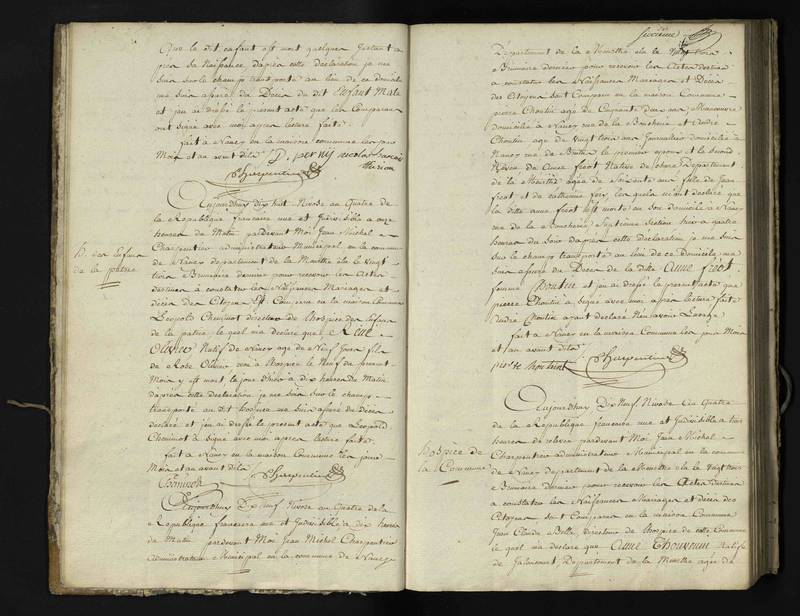 Que le dit enfant est mort quelques instant a
près sa Naissance. D'après cette déclaration je me
suis sur le champ transporté au lieu de ce domicile
me suis assuré du Décès du dit Enfant Male
et j'en ai dressé le présent acte que les Comparans
ont Signé avec moi après lecture faite.
fait a Nancy en la maison commune les jour
Mois et an avant dits
Charpentier
Aujourdhuy Dix huit Nivose an Quatre de
la Republique francaise une et Indivisible a onze
heures du Matin pardevant Moi Jean Michel
Charpentier administrateur Municipal en la commune
de Nancy departement de la Meurthe élu le Vingt
trois Brumaire dernier pour recevoir les Actes
destinés a constater les Naissances Mariages et
décès des Citoyens Est Comparu en la maison Commune
Léopold Chenimot directeur de l'hospice des Enfans
de la patrie le quel m'a déclaré que René
Olivier Natif de Nancy age de Neuf Jours fils
de Rose Olivier né a l'hospice le Neuf du present
Mois y est mort le jour d'huy a dix heures du Matin
d'après cette déclaration je me suis sur le champ
transporté au dit hospice me suis assuré du Décès
declaré et j'en ai dressé le present acte que Léopold
Chenimot a Signé avec moi après lecture faite.
fait a Nancy en la maison Commune les jour
Mois et an avant dits
Charpentier
Aujourdhuy Dix Neuf Nivose an Quatre de la
Republique francaise une et Indivisible a dix heures
du Matin pardevant Moi Jean Michel Charpentier
Administrateur Municipal en la commune de Nancy
D. des Enfans
de la patrie
Département de la Meurthe élu le Vingt trois
Brumaire dernier pour recevoir les Actes destinés
a constater les Naissances Mariages et Décès
des Citoyens sont Comparus en la maison Commune
pierre Choutin agé de
domicilié a Nancy rue de la Boucherie et André
Choutin agé de vingt trois ans Journalier domicilié a
Nancy rue de le premier epoux et le second
de Anne fréot Native de Departement
de la Meurthe agée de Soixante ans fille de Jean
freot et de catherine les quels m'ont déclaré que
la ditte anne fréot est morte en son domicile a Nancy
rue de la Boucherie Septieme Section hier a quatre
heures du Soir d'après cette déclaration je me suis
sur le champ transporté au lieu de ce Domicile me
suis assuré du Décès de la ditte Anne fréot
femme Choutin et j'en ai dressé le present acte que
pierre Choutin a Signé avec moi après lecture faite
André Choutin ayant declaré ne savoir Le faire
fait a Nancy en la maison Commune les jour Mois
et an avant dits
Charpentier
Aujourdhuy Dix Neuf Nivose an Quatre
de la Republique francaise une et Indivisible a trois
heures de relevée pardevant Moi Jean Michel
Charpentier administrateur Municipal en la commune
de Nancy departement de la Meurthe élu le Vingt trois
Brumaire dernier pour recevoir les Actes destinés
a constater les Naissances Mariages et Décès des
Citoyens est Comparu en la maison Commune
Jean Claude directeur de l'hospice de cette Commune
le quel m'a déclaré que Anne Thouvenin Native
de Departement de la Meurthe agée de
Hospice de
la Commune